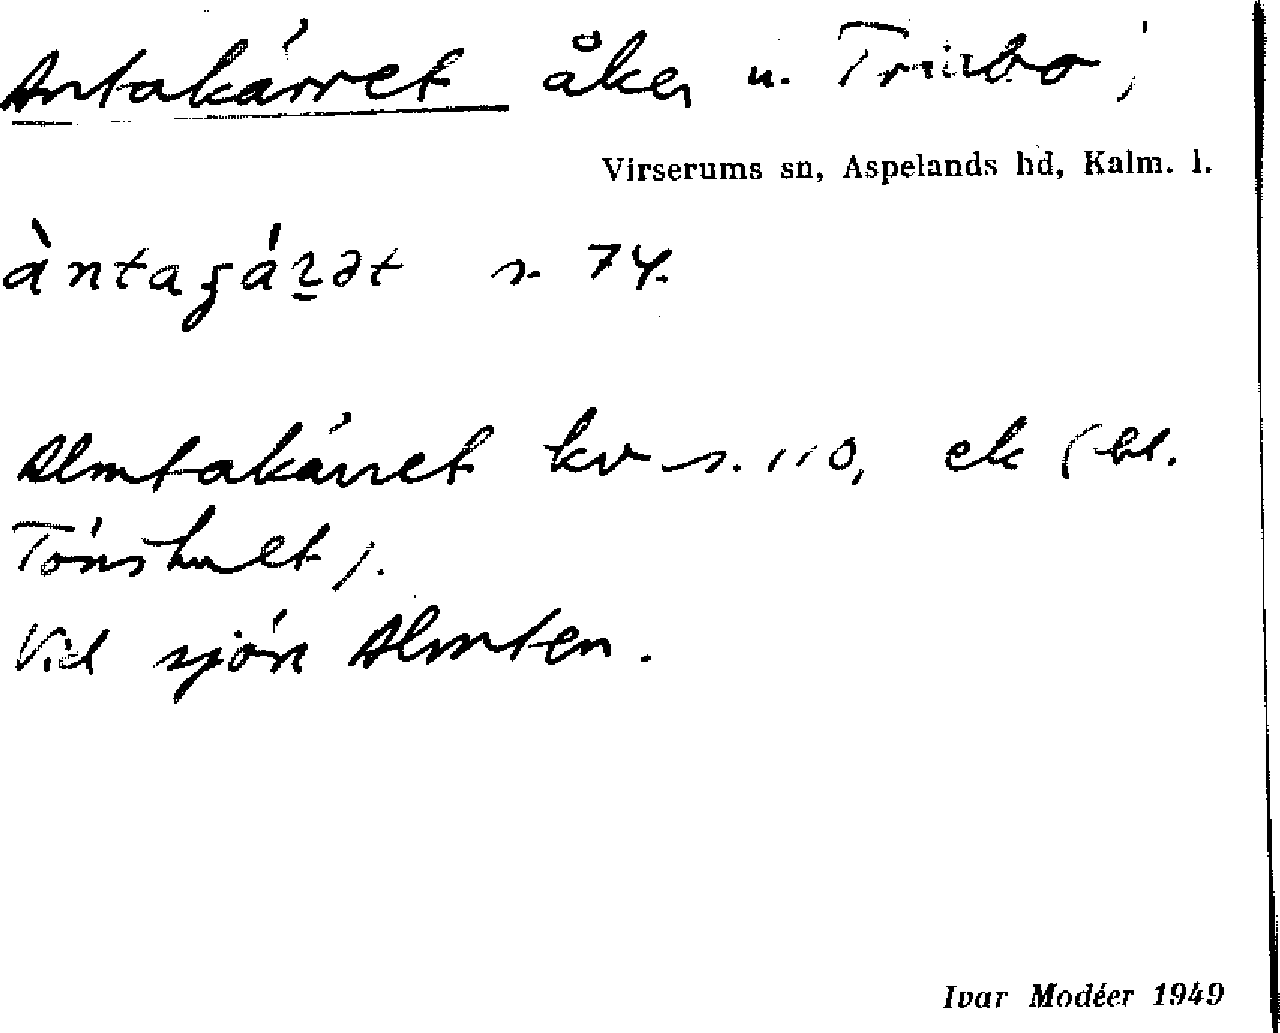 Antakärret åker u. Trinbo,
Virserums sn, Aspelands hd, Kalm. l.
àntagár̠ət s. 74.
Almtakärret kv s. 110, ek (bl.
Tönshult).
Vid sjön Almten.
Ivar Modéer 1949